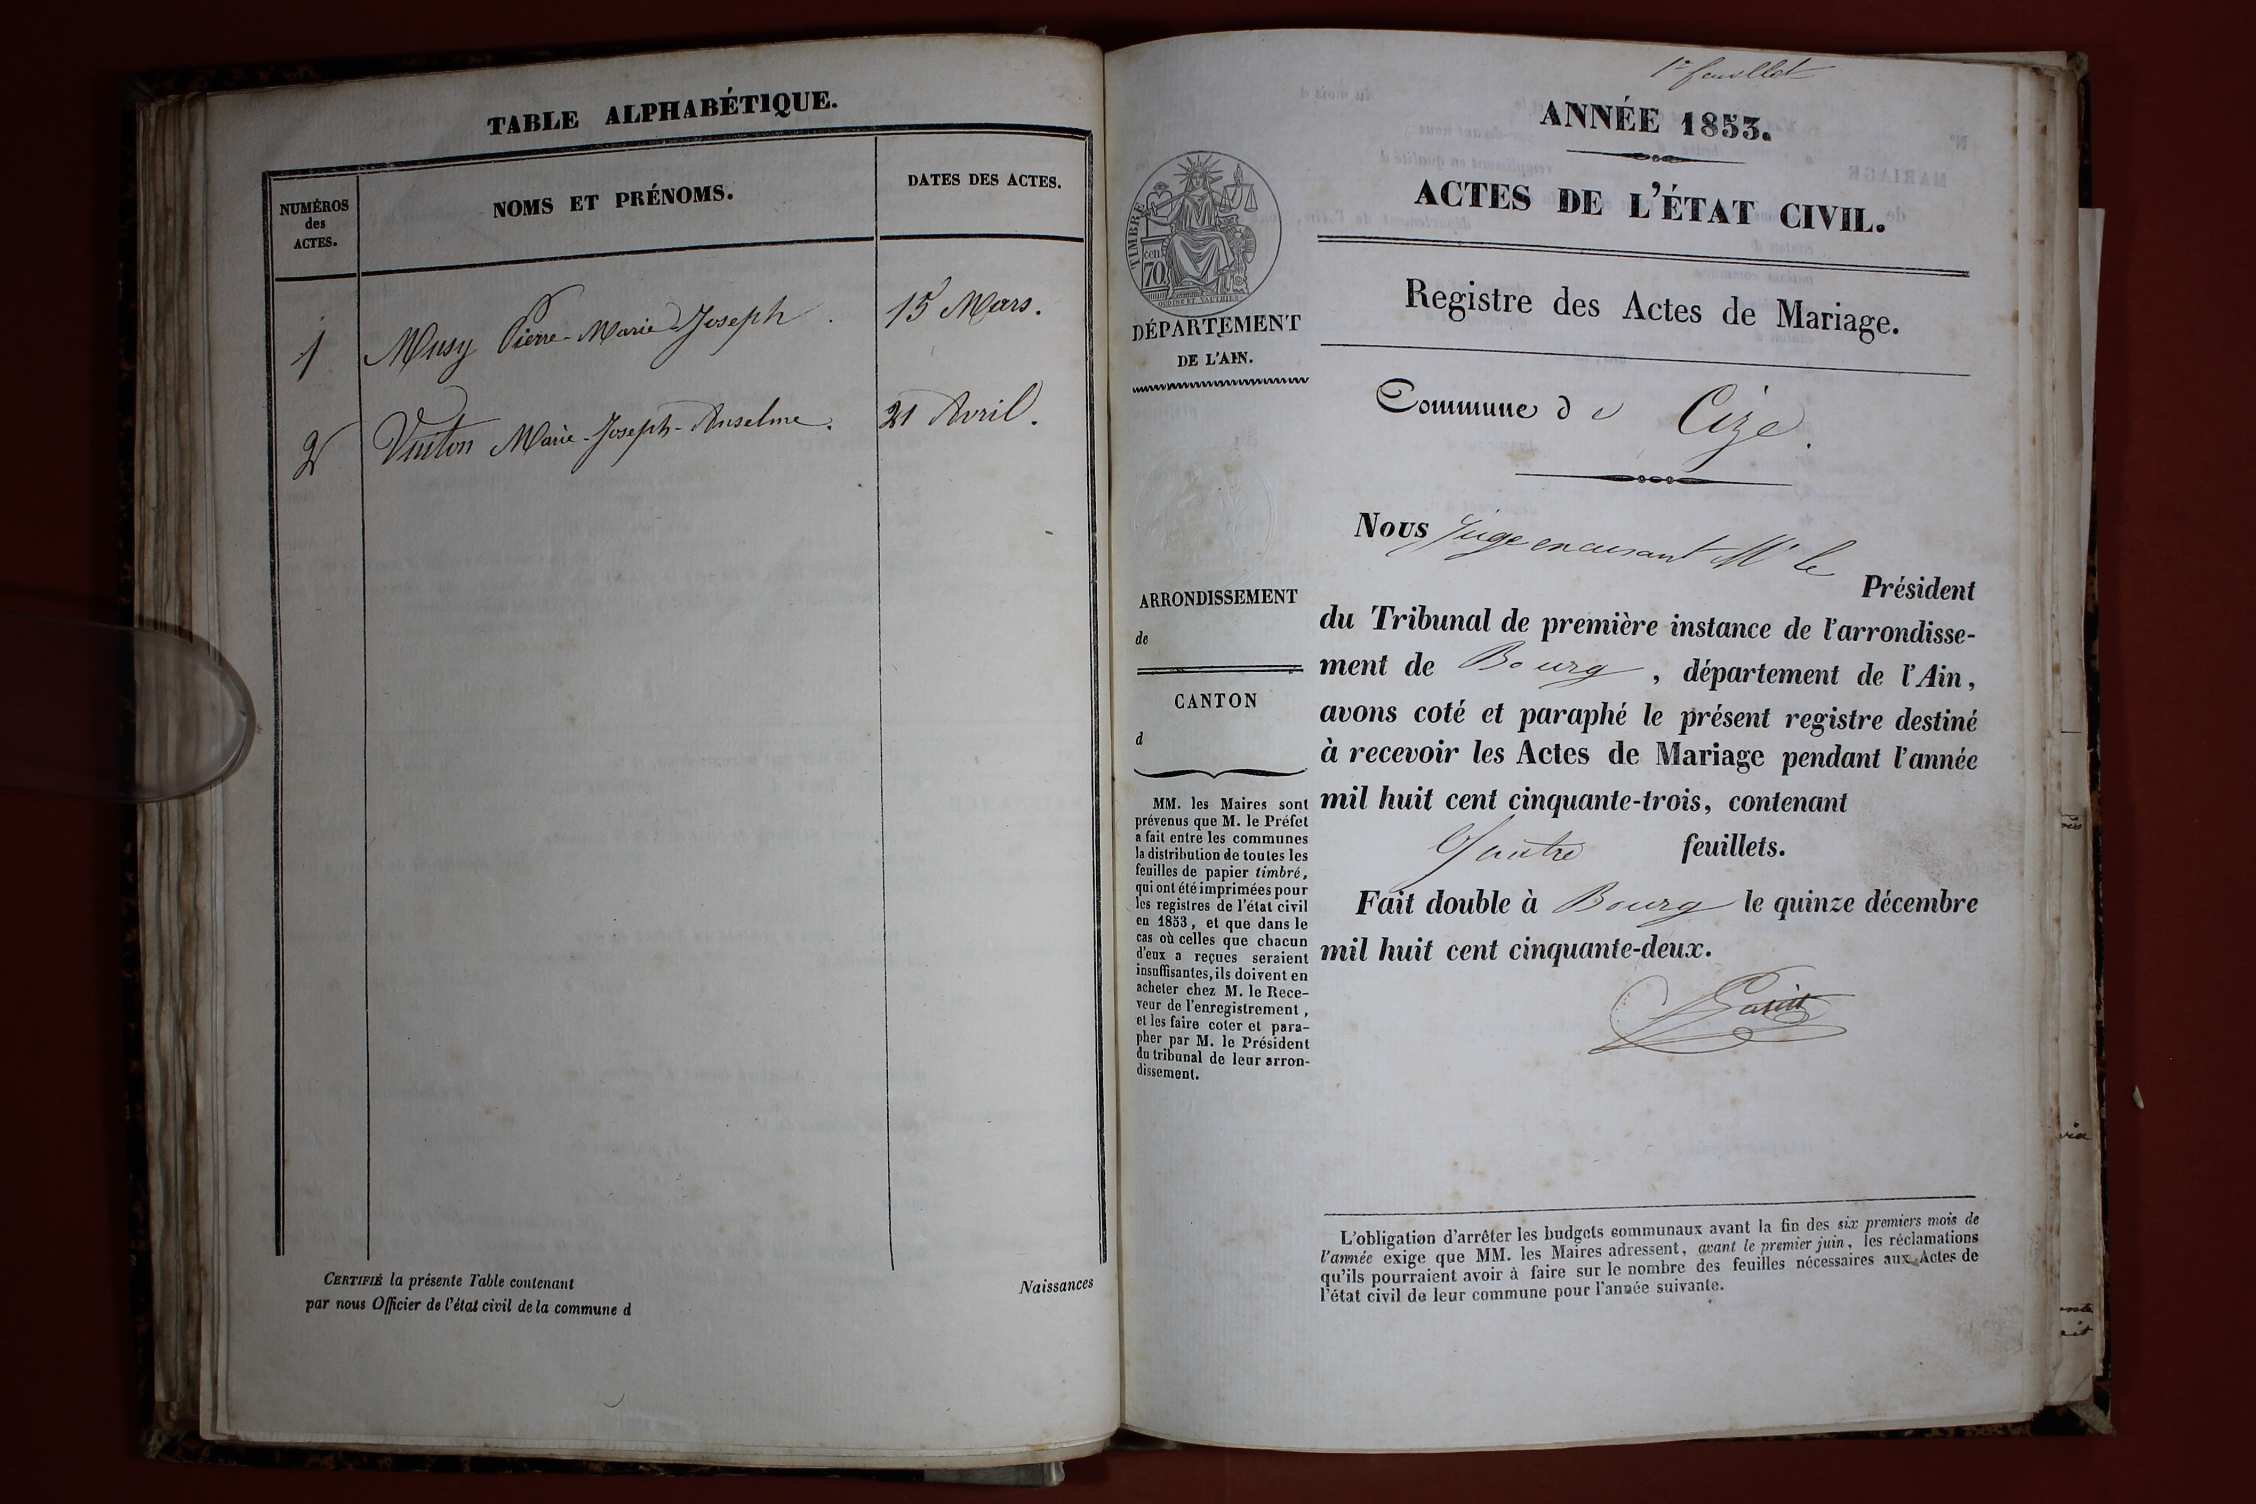 TABLE ALPHABÉTIQUE.
NUMÉROS
des
ACTES.
NOMS ET PRÉNOMS.
DATES DES ACTES.
1 Musy Pierre-Marie-Joseph. 15 Mars.
2 Marie-Joseph-Anselme. 21 Avril.
CERTIFIÉ la présente Table contenant Naissances
par nous Officier de l'état civil de la commune d
1er feuillet
ANNÉE 1853.
ACTES DE L'ÉTAT CIVIL.
Registre des Actes de Mariage.
TIMBRE
70
cent
DÉPARTEMENT
DE L'AIN.
ARRONDISSEMENT
de
CANTON
d
MM. les Maires sont
prévenus que M. le Préfet
a fait entre les communes
la distribution de toutes les
feuilles de papier timbré,
qui ont été imprimées pour
les registres de l'état civil
en 1853, et que dans le
cas où celles que chacun
d'eux a reçues seraient
insuffisantes, ils doivent en
acheter chez M. le Rece-
veur de l'enregistrement,
et les faire coter et para-
pher par M. le Président
du tribunal de leur arron-
dissement.
Commune de Cize.
Nous Juge en cursant Mr le
Président
du Tribunal de première instance de l'arrondisse-
ment de Bourg, département de l'Ain,
avons coté et paraphé le présent registre destiné
à recevoir les Actes de Mariage pendant l'année
mil huit cent cinquante-trois, contenant
feuillets.
Fait double à Bourg le quinze décembre
mil huit cent cinquante-deux.
L'obligation d'arrêter les budgets communaux avant la fin des six premiers mois de
l'année exige que MM. les Maires adressent, avant le premier juin, les réclamations
qu'ils pourraient avoir à faire sur le nombre des feuilles nécessaires aux Actes de
l'état civil de leur commune pour l'année suivante.